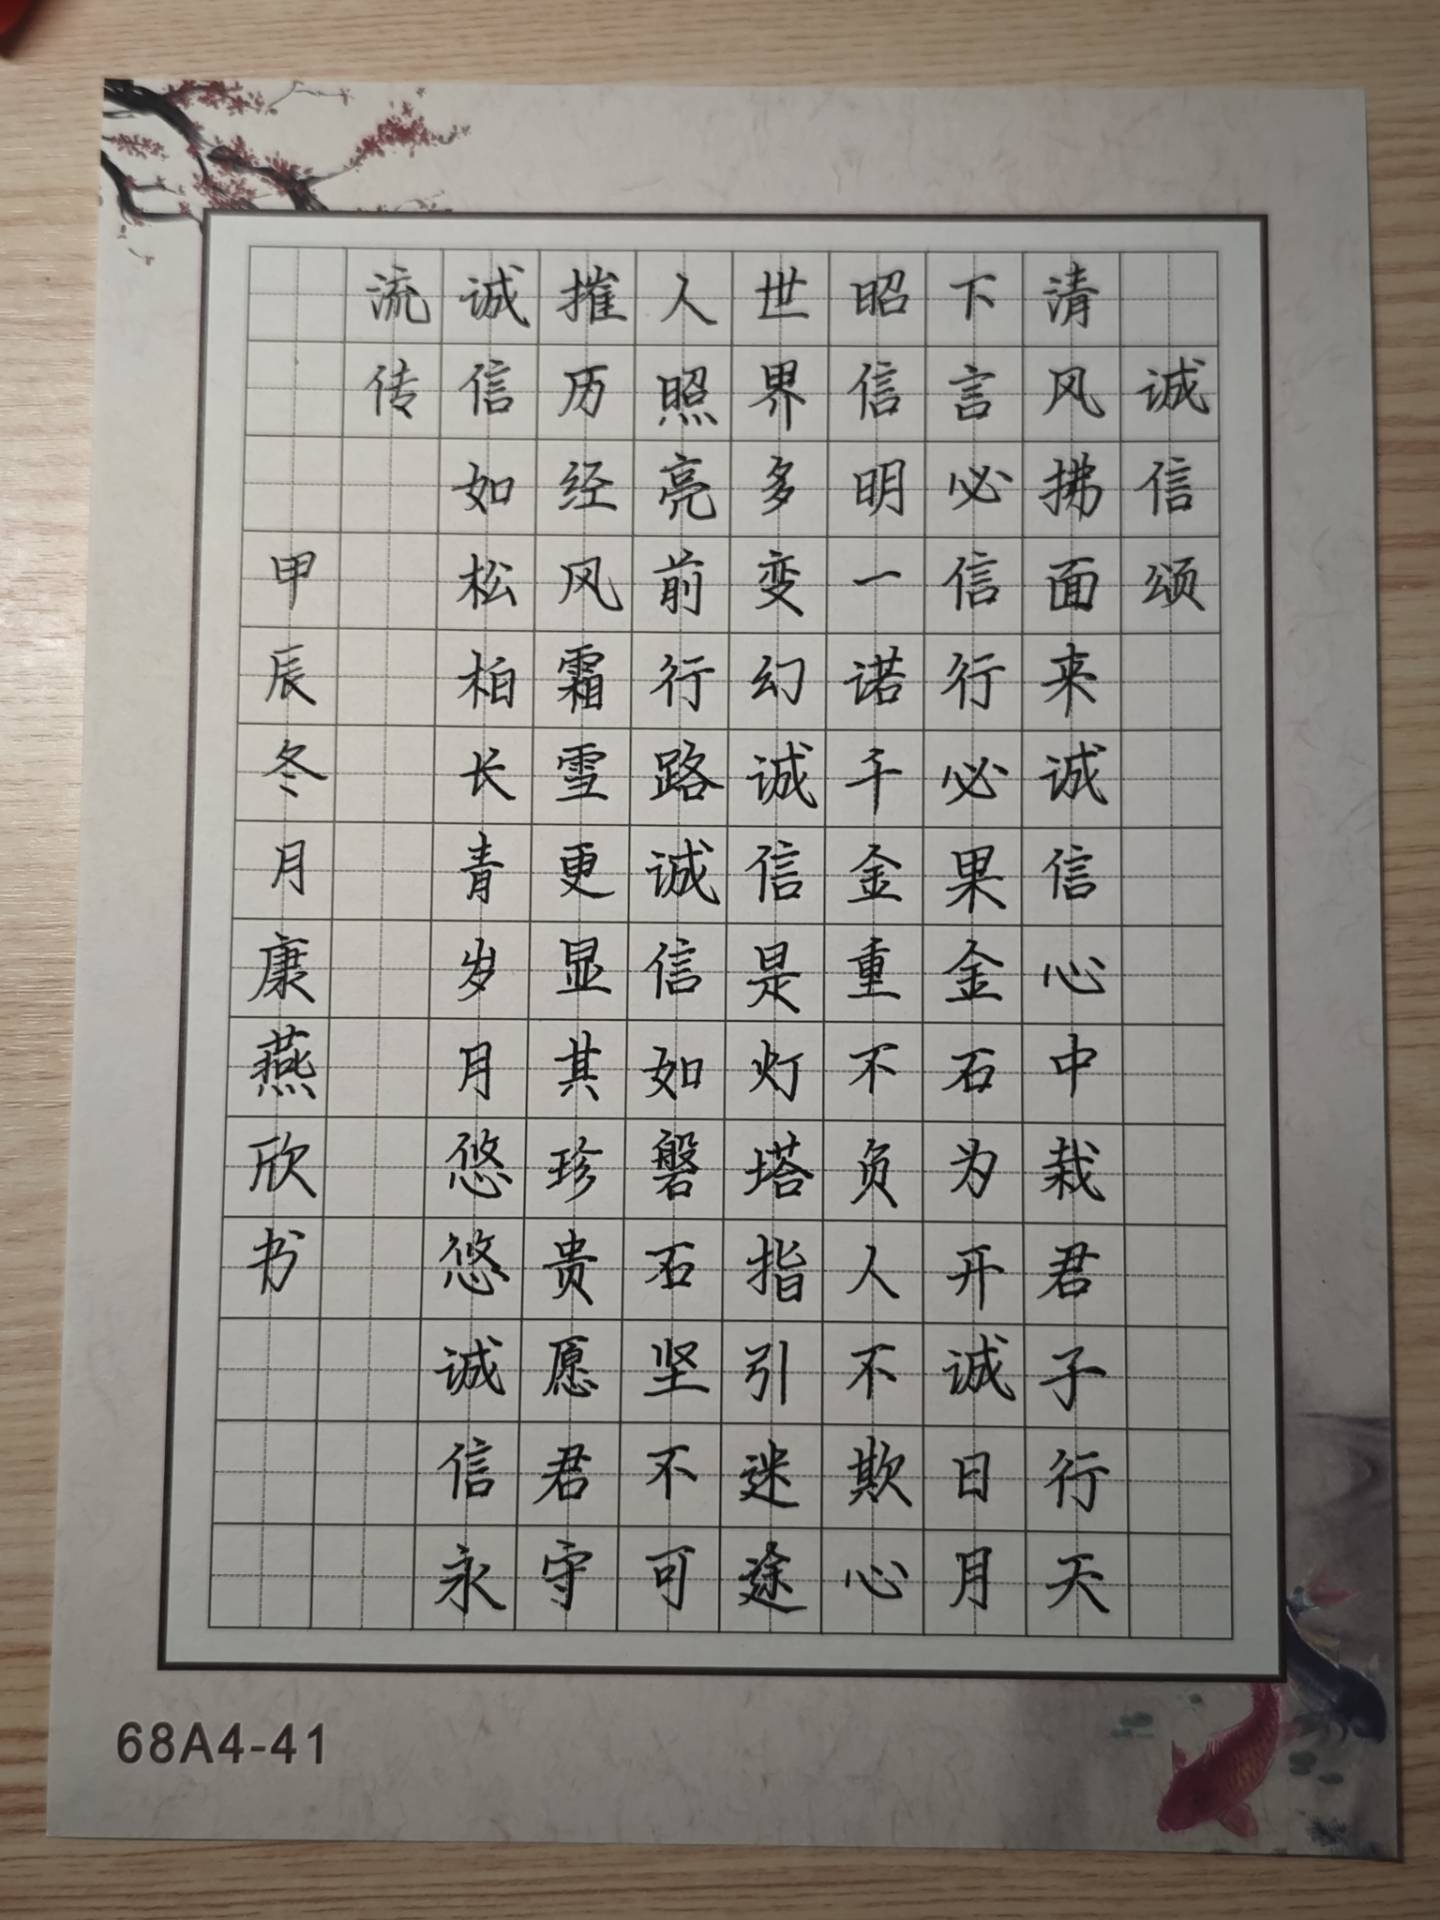 诚信颂
清风拂面来诚信心中栽君子行天
下言必信行必果金石为开诚日月
昭信明一诺千金重不负人不欺心
世界多变幻诚信是灯塔指引迷途
人照亮前行路诚信如磐石坚不可
摧历经风霜雪更显其珍贵愿君守
诚信如松柏长青岁月悠悠诚信永
流传
甲辰冬月康燕欣书
68A4-41